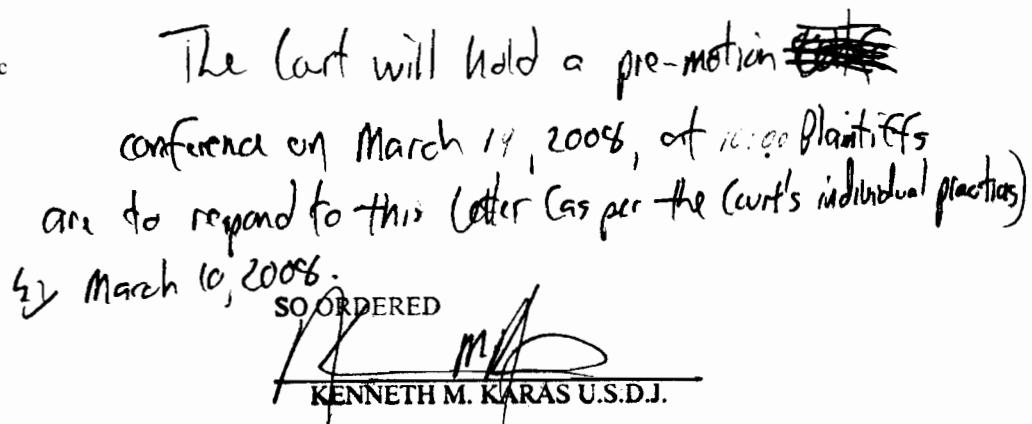 The Court will hold a pre-motion
conference on March 14, 2008, at 10:00 Plaintiffs
are to respond to this letter (as per the Court's individual practices)
by March 10, 2008.
SO ORDERED
KENNETH M. KARAS U.S.D.J.